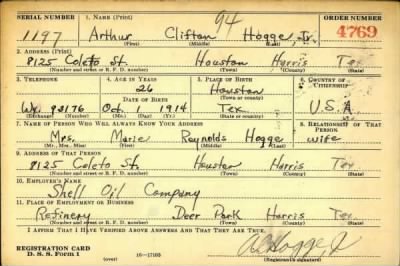 94
SERIAL NUMBER 1. NAME (Print) ORDER NUMBER
1197 Arthur Clifton Hogge, Jr. 4769
(First) (Middle) (Last)
2. ADDRESS (Print)
8125 Coleto St. Houston Harris Tex
(Number and street or R. F. D. number) (Town) (County) (State)
3. TELEPHONE 4. AGE IN YEARS 5. PLACE OF BIRTH 6. COUNTRY OF CITIZENSHIP
26 Houston
DATE OF BIRTH (Town or county)
Wx. 92176 Oct. 1 1914 Tex. U.S.A.
(Exchange) (Number) (Mo.) (Day) (Yr.) (State or country)
7. NAME OF PERSON WHO WILL ALWAYS KNOW YOUR ADDRESS 8. RELATIONSHIP OF THAT PERSON
Mrs. Marie Reynolds Hogge wife
(Mr., Mrs., Miss) (First) (Middle) (Last)
9. ADDRESS OF THAT PERSON
8125 Coleto St. Houston Harris Tex
(Number and street or R. F. D. number) (Town) (County) (State)
10. EMPLOYER'S NAME
Shell Oil Company
11. PLACE OF EMPLOYMENT OR BUSINESS
Refinery Deer Park Harris Tex
(Number and street or R. F. D. number) (Town) (County) (State)
I AFFIRM THAT I HAVE VERIFIED ABOVE ANSWERS AND THAT THEY ARE TRUE.
REGISTRATION CARD
D. S. S. Form 1 (over) 16—17105 AC Hogge Jr